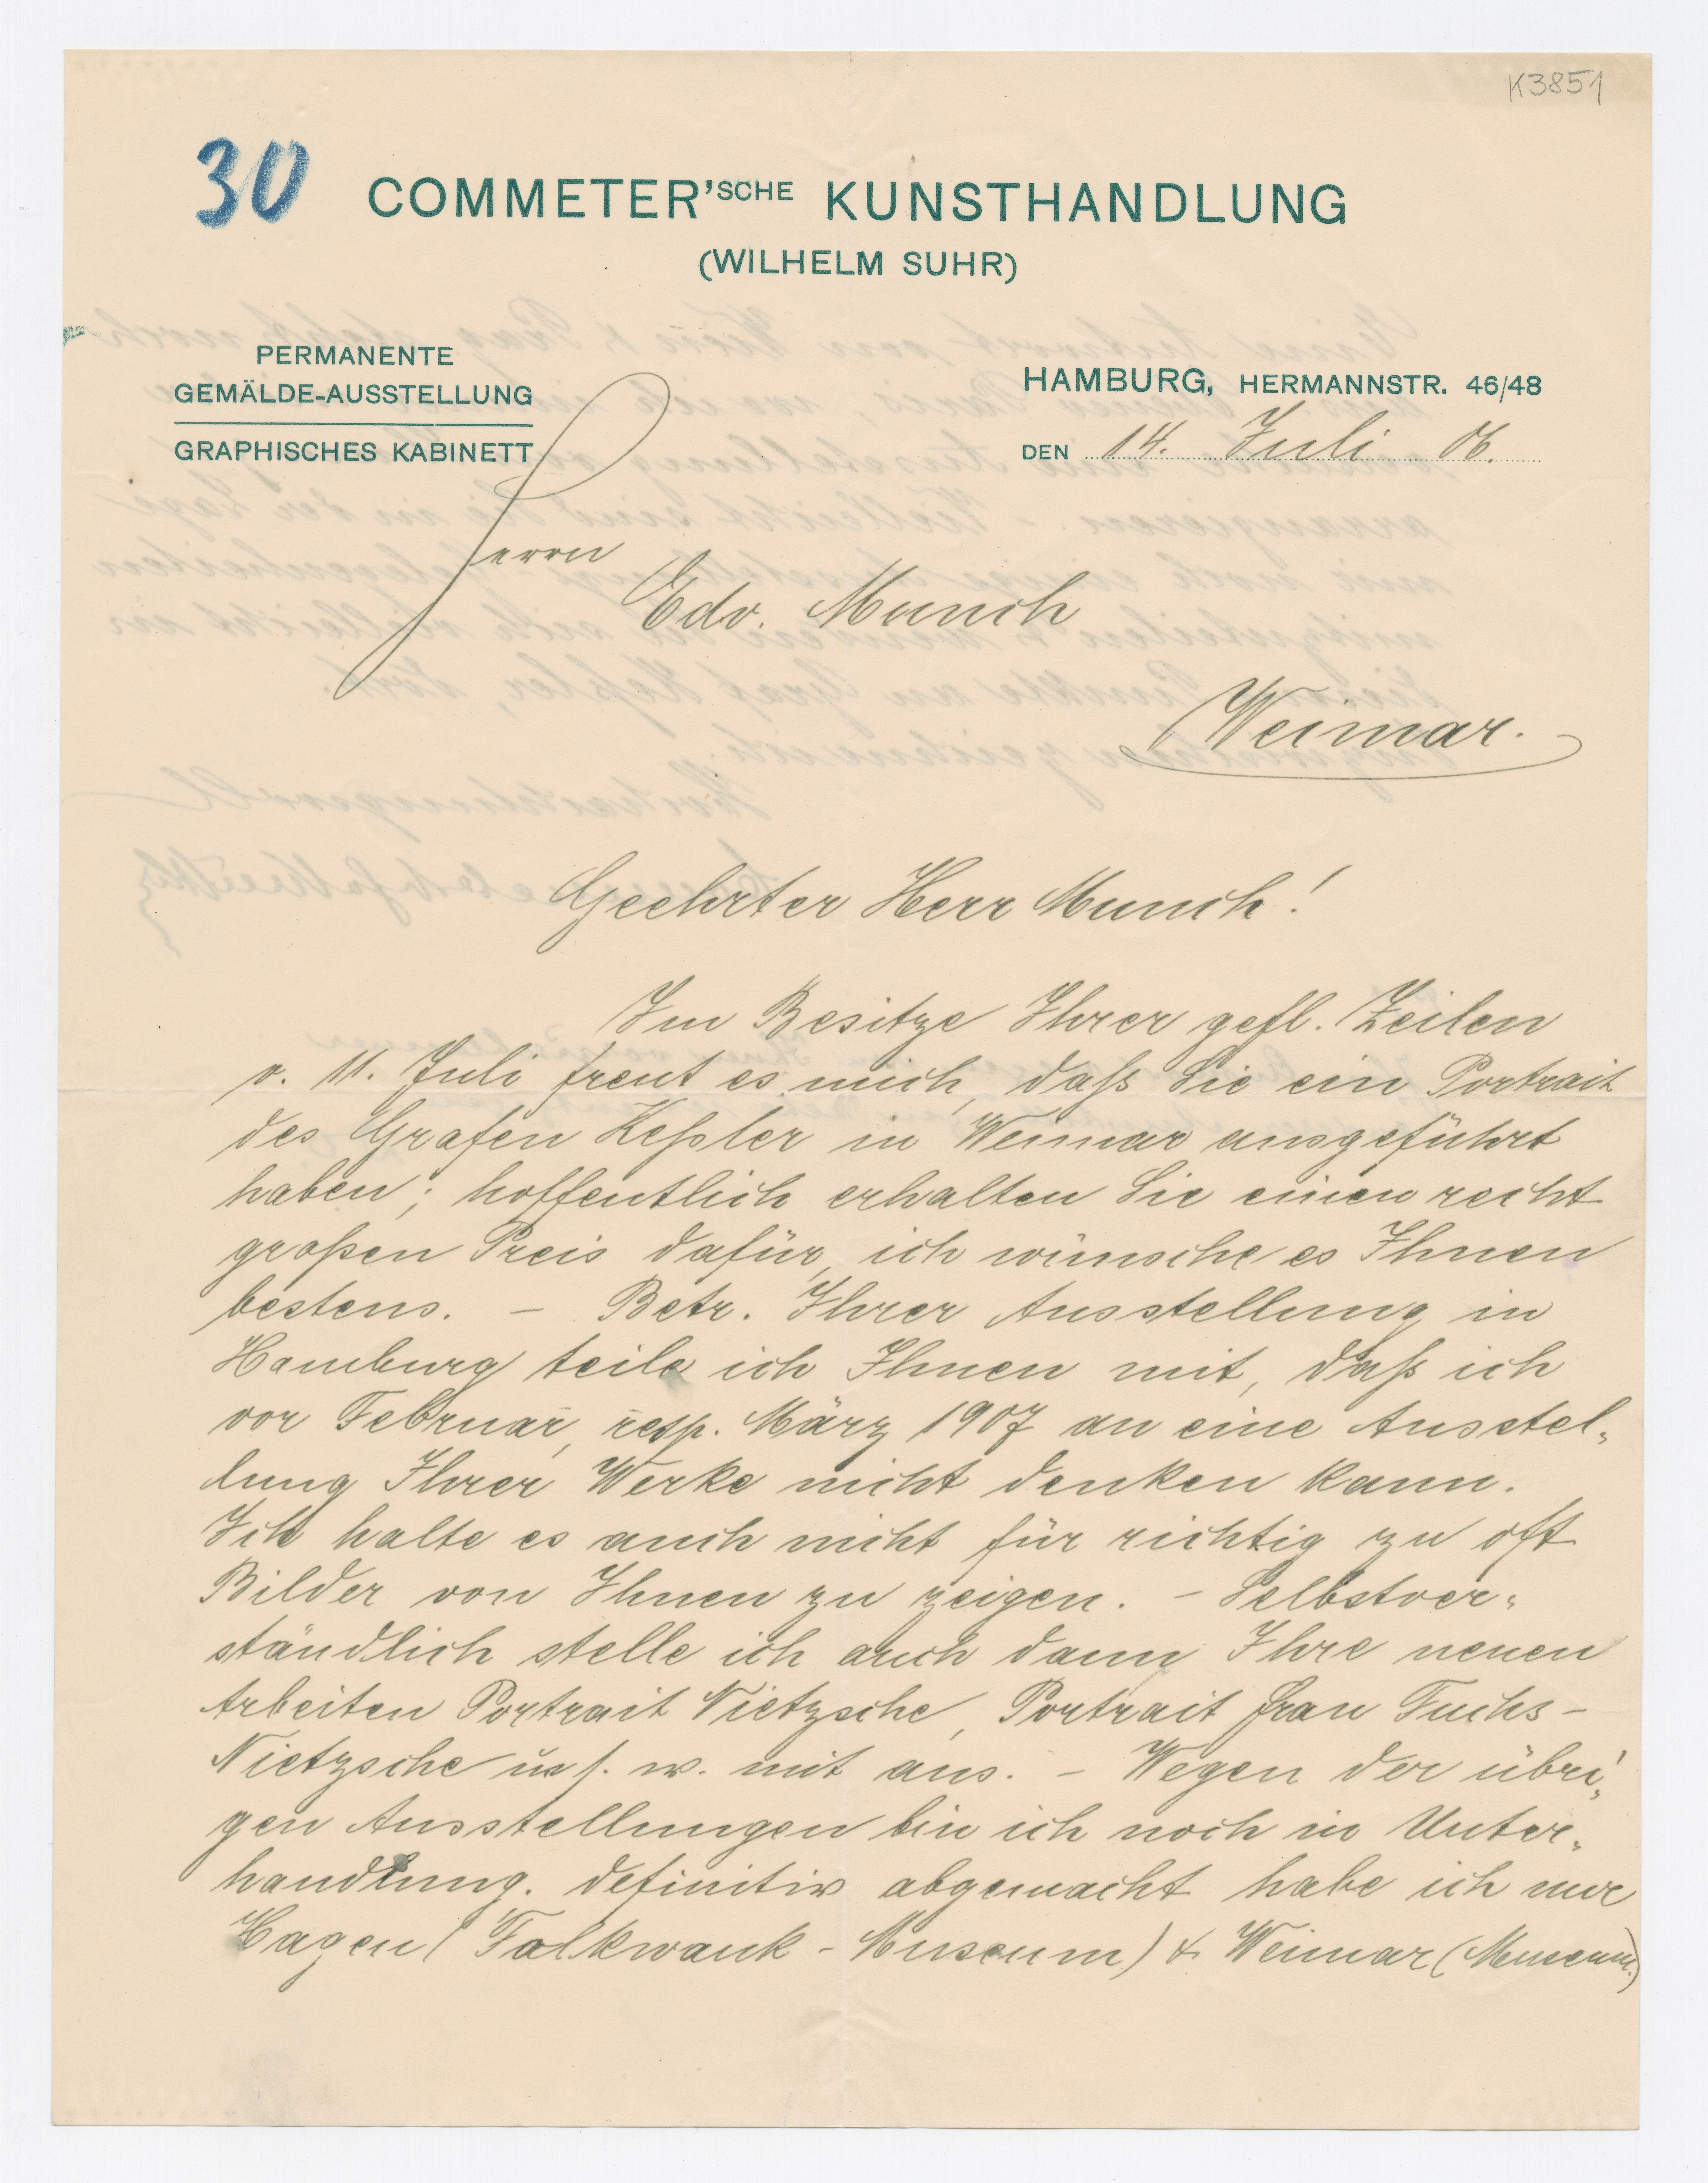 K3851
30
COMMETER'SCHE KUNSTHANDLUNG
(WILHELM SUHR)
PERMANENTE
GEMÄLDE-AUSSTELLUNG
GRAPHISCHES KABINETT
HAMBURG, HERMANNSTR. 46/48
DEN 14. Juli 06.
Herrn
Edv. Munch
Weimar.
Geehrter Herr Munch!
Im Besitze Ihrer gefl. Zeilen
v. 11. Juli freut es mich, daß Sie ein Portrait
des Grafen Keßler in Weimar ausgeführt
haben; hoffentlich erhalten Sie einen recht
großen Preis dafür, ich wünsche es Ihnen
bestens. – Betr. Ihrer Ausstellung in
Hamburg teile ich Ihnen mit, daß ich
vor Februar, resp. März 1907 an eine Ausstel-
lung Ihrer Werke nicht denken kann.
Ich halte es auch nicht für richtig zu oft
Bilder von Ihnen zu zeigen. – Selbstver-
ständlich stelle ich auch dann Ihre neuen
Arbeiten Portrait Nietzsche, Portrait Frau Fuchs-
Nietzsche u. s. w. mit aus. – Wegen der übri-
gen Ausstellungen bin ich noch in Unter-
handlung. definitiv abgemacht habe ich nur
Hagen (Falkwank-Museum) & Weimar (Museum.)